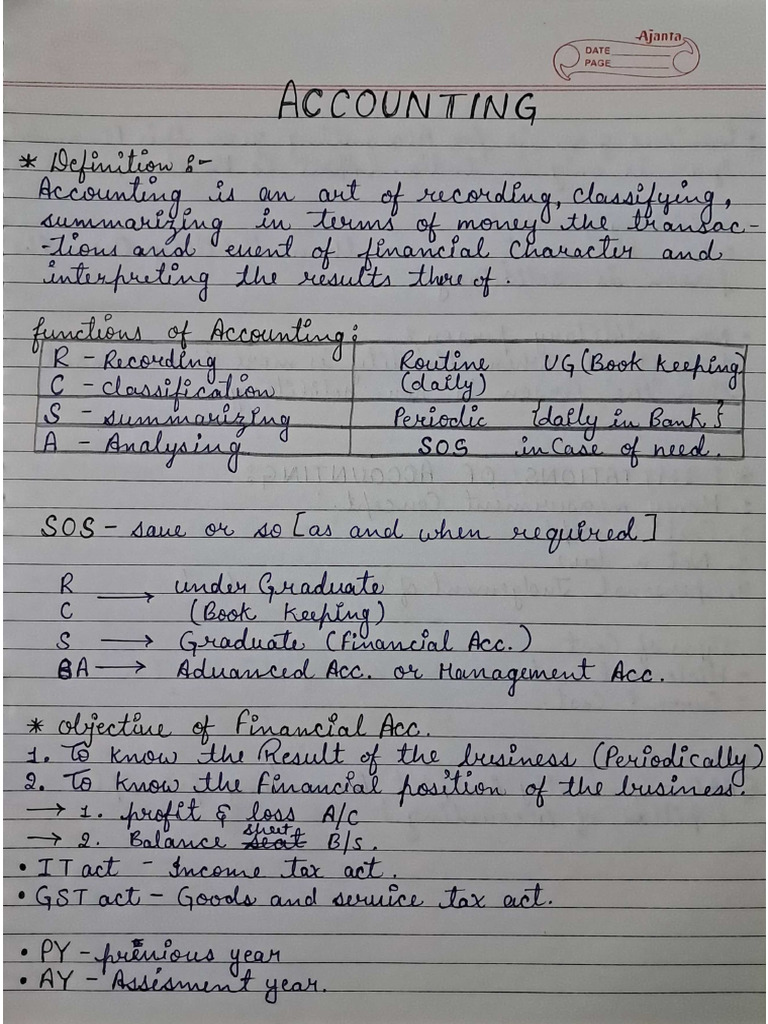 Ajanta
DATE
PAGE
ACCOUNTING
* Definition :-
Accounting is an art of recording, classifying,
summarizing in terms of money the transac-
-tions and event of financial character and
interpreting the results there of.
functions of Accounting:
R - Recording Routine UG (Book keeping)
C - classification (daily)
S - summarizing Periodic {daily in Bank}
A - Analysing SOS in case of need.
SOS - save or so [as and when required]
R → under Graduate
C (Book keeping)
S → Graduate (financial Acc.)
A → Advanced Acc. or Management Acc.
* objective of financial Acc.
1. To know the Result of the business (Periodically)
2. To know the financial position of the business.
→ 1. profit & loss A/C
→ 2. Balance sheet B/S.
• IT act - Income tax act.
• GST act - Goods and service tax act.
• PY - previous year
• AY - Assisment year.